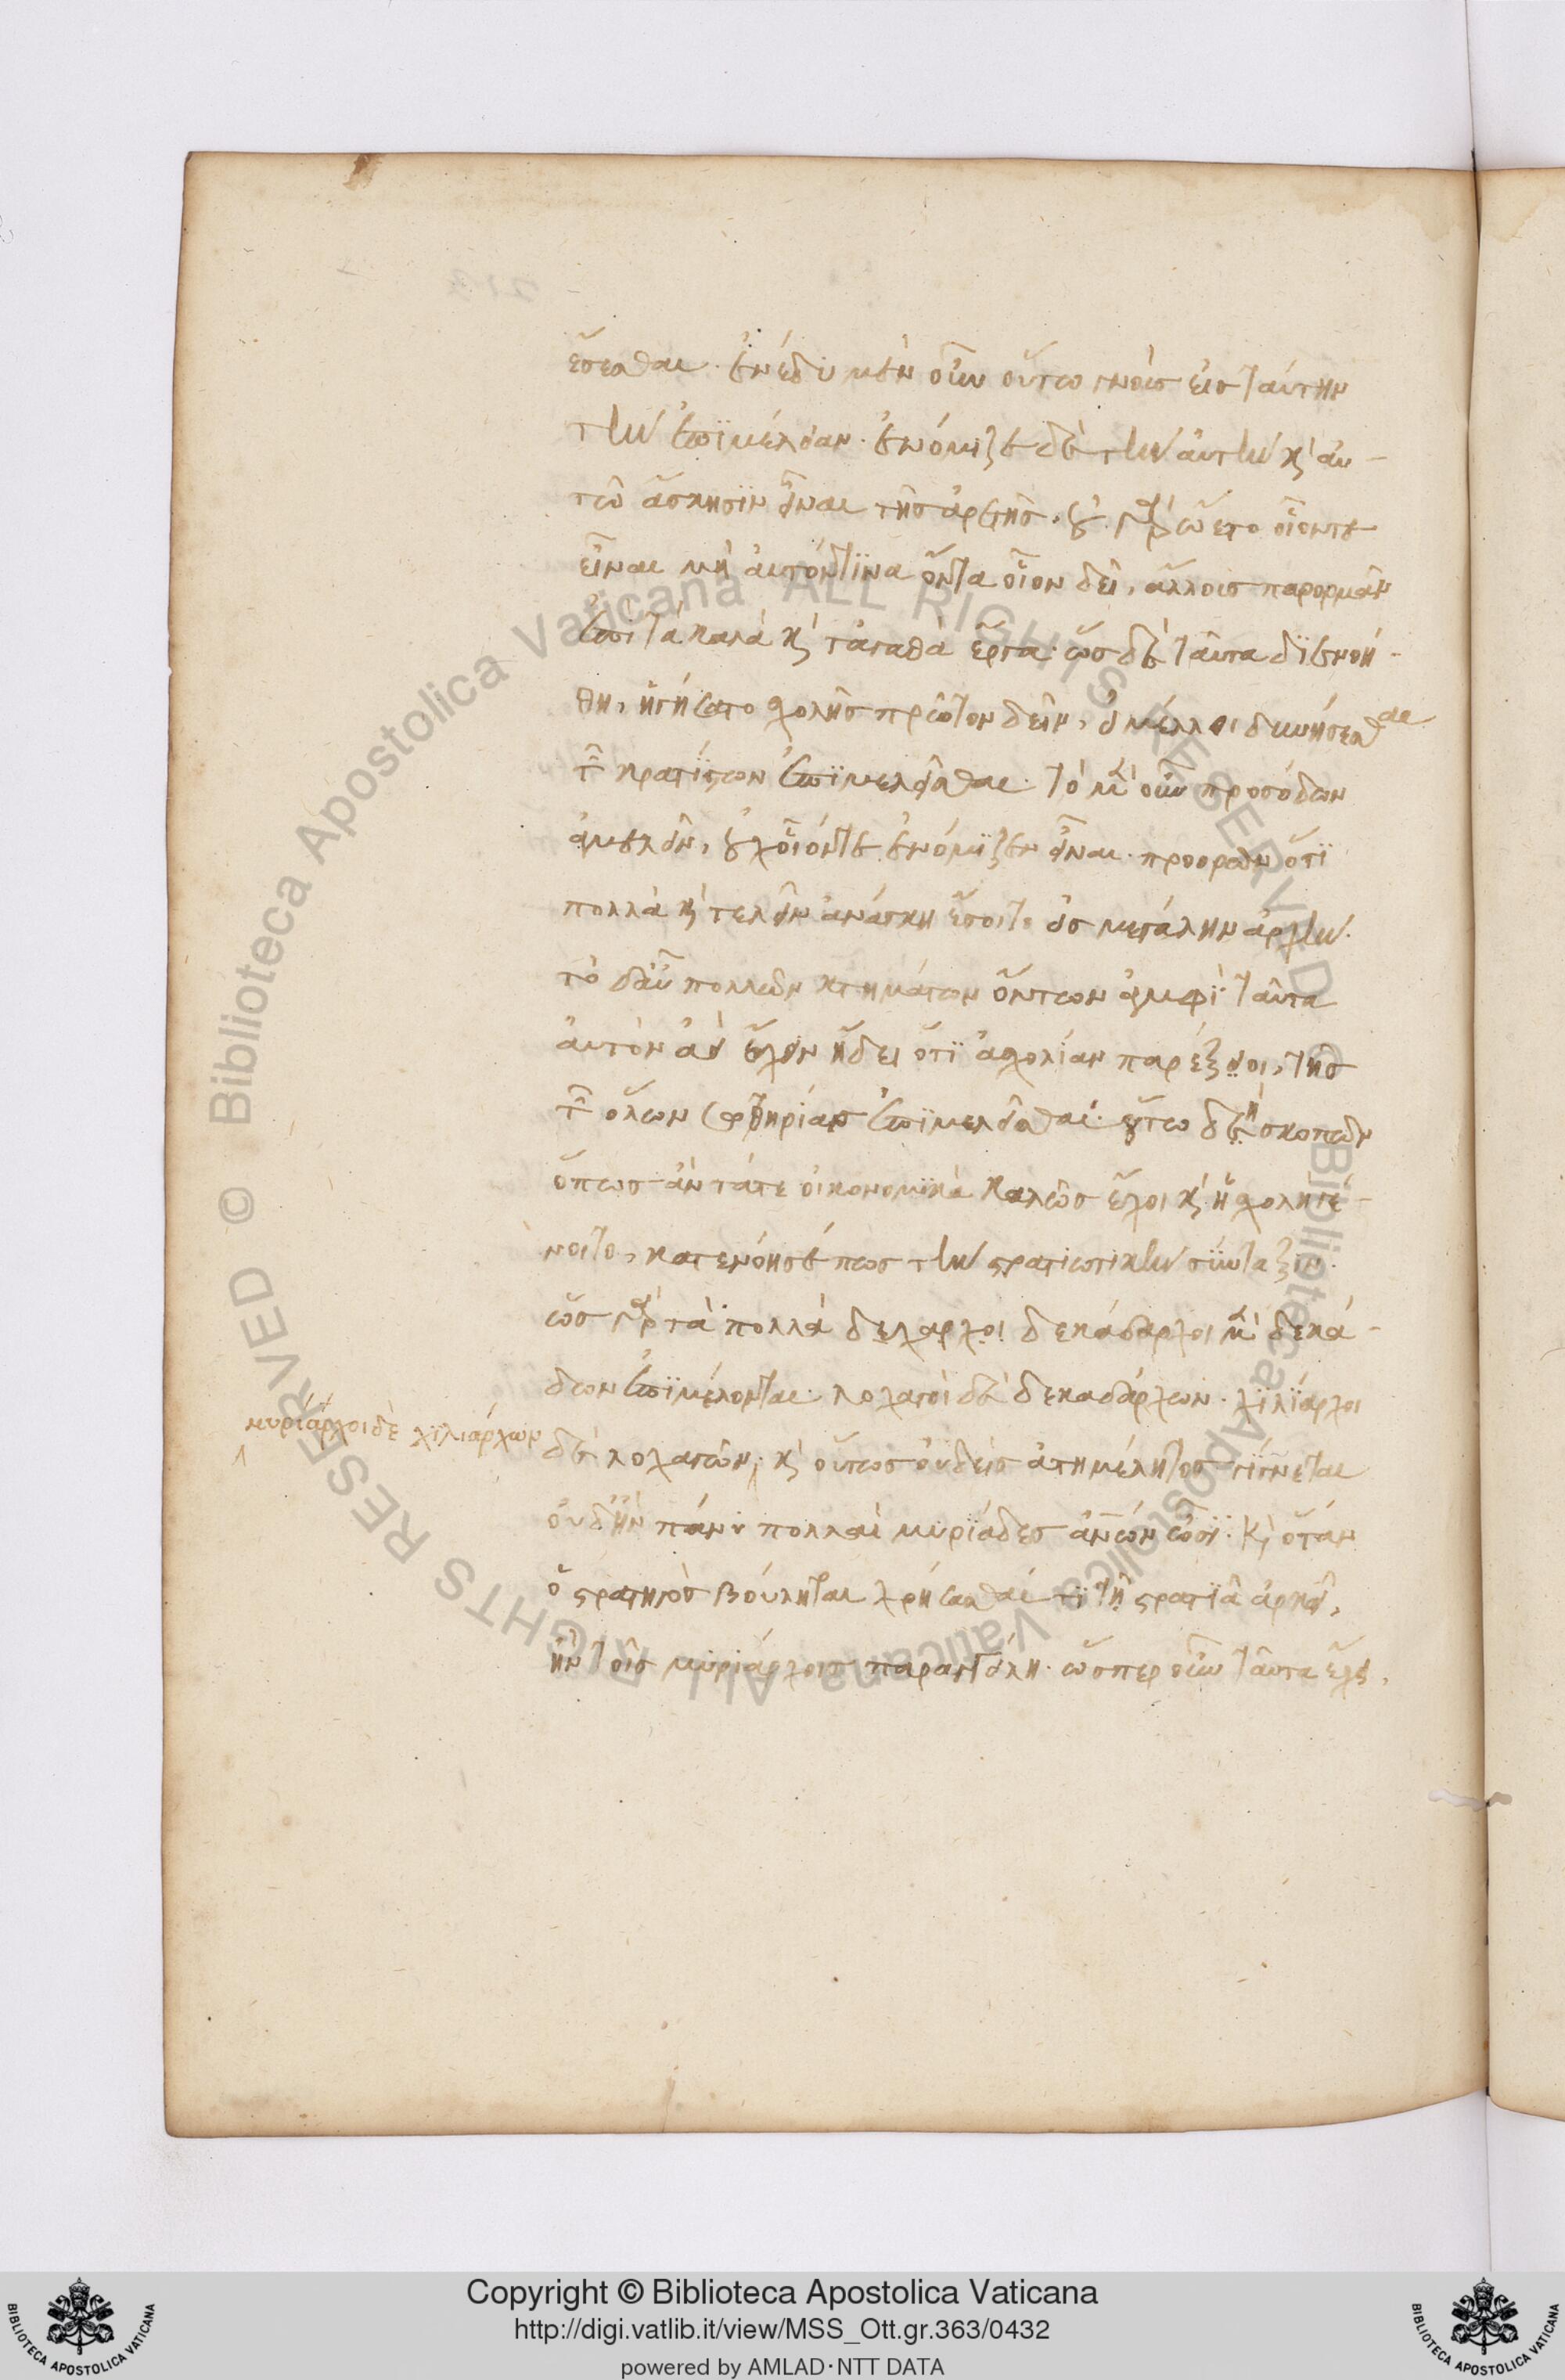 ἔσεσθαι. ἐνέδυ μὲν οὖν οὕτω γνοὺς εἰς ταύτην
τὴν ἐπιμέλειαν. ἐνόμιζε δὲ τὴν αὐτὴν καὶ αὐ-
τῶ ἄσκησιν εἶναι τῆς ἀρετῆς. οὐ γὰρ ὤετο οἷόντε
εἶναι μὴ αὐτόν τινα ὄντα οἷον δεῖ, ἄλλοις παρορμᾶν
ἐπὶ τὰ καλὰ καὶ τἀγαθὰ ἔργα. ὡς δὲ ταῦτα διενοή-
θη, ἡγήσατο σχολῆς πρῶτον δεῖν, εἰ μέλλοι δυνήσεσθαι
τῶν κρατίστων ἐπιμελεῖσθαι. τὸ μὲν οὖν προσόδων
ἀμελεῖν, οὐχ οἷόντε ἐνόμιζεν εἶναι. προορῶν ὅτι
πολλὰ καὶ τελεῖν ἀνάγκη ἔσοιτο εἰς μεγάλην ἀρχήν.
τὸ δ' αὖ πολλῶν κτημάτων ὄντων ἀμφὶ ταῦτα
αὐτὸν ἀεὶ ἔχειν ᾔδει ὅτι ἀσχολίαν παρέξει, τῆς
τῶν ὅλων σωτηρίας ἐπιμελεῖσθαι. οὕτω δὴ σκοπῶν
ὅπως ἂν τά τε οἰκονομικὰ καλῶς ἔχοι καὶ ἡ σχολὴ γέ-
νοιτο, κατενόησέ πως τὴν στρατιωτικὴν σύνταξιν.
ὡς γὰρ τὰ πολλὰ δέκαρχοι δεκάδαρχοι μὲν δεκά-
δων ἐπιμέλονται. λοχαγοὶ δὲ δεκαδάρχων. χιλίαρχοι
μυρίαρχοι δὲ χιλιάρχων
δὲ λοχαγῶν, καὶ οὕτως οὐδεὶς ἀτημέλητος γίγνεται
οὐδ' ἢν πάνυ πολλαὶ μυριάδες ἀνθρώπων ὦσι. καὶ ὅταν
ὁ στρατηγὸς βούληται χρήσασθαί τι τῇ στρατιᾷ ἀρκεῖ,
ἢν τοῖς μυριάρχοις παραγγείλῃ. ὥσπερ οὖν ταῦτα ἔχει,
Copyright © Biblioteca Apostolica Vaticana
http://digi.vatlib.it/view/MSS_Ott.gr.363/0432
powered by AMLAD·NTT DATA